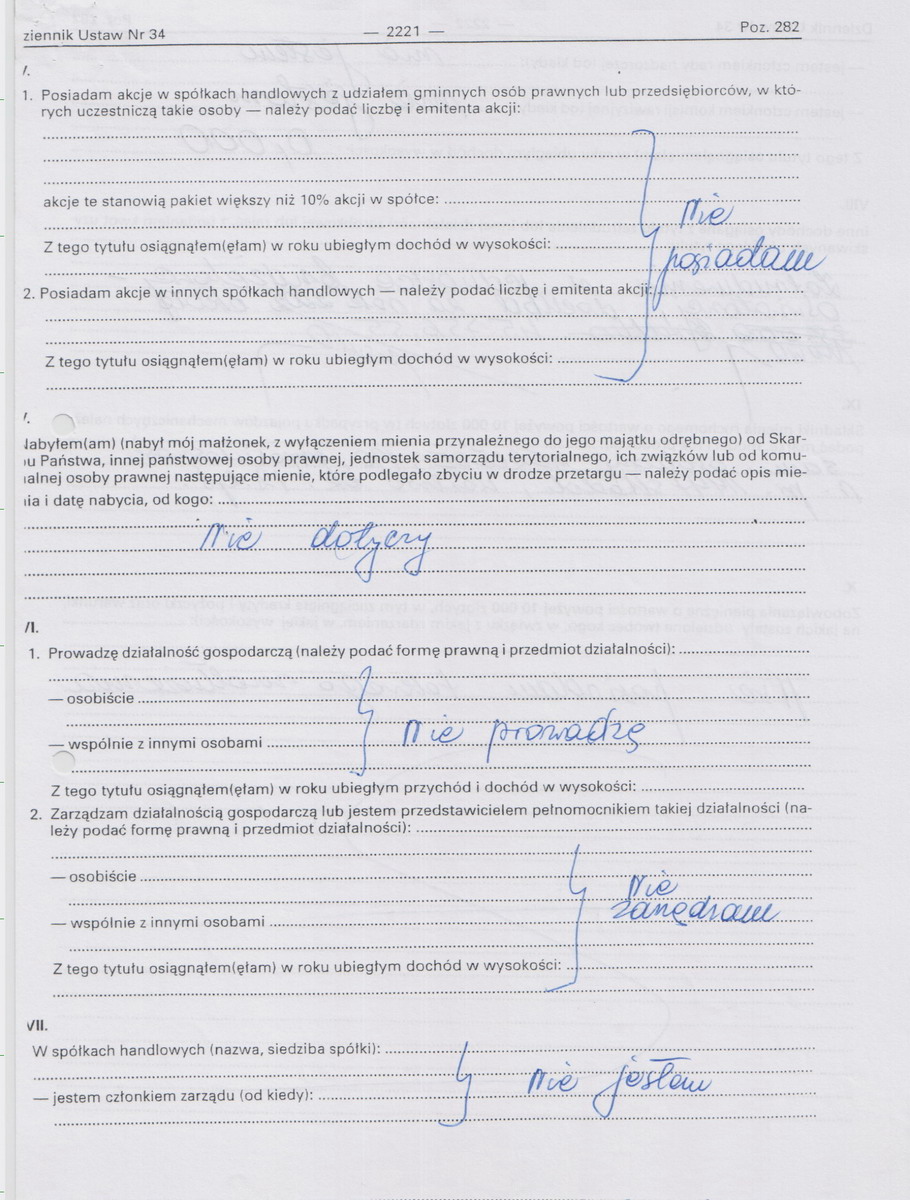 ziennik Ustaw Nr 34 — 2221 — Poz. 282
1. Posiadam akcje w spółkach handlowych z udziałem gminnych osób prawnych lub przedsiębiorców, w któ-
rych uczestniczą takie osoby — należy podać liczbę i emitenta akcji:
akcje te stanowią pakiet większy niż 10% akcji w spółce:
Nie
Z tego tytułu osiągnąłem(ęłam) w roku ubiegłym dochód w wysokości:
posiadam
2. Posiadam akcje w innych spółkach handlowych — należy podać liczbę i emitenta akcji:
Z tego tytułu osiągnąłem(ęłam) w roku ubiegłym dochód w wysokości:
Nabyłem(am) (nabył mój małżonek, z wyłączeniem mienia przynależnego do jego majątku odrębnego) od Skar-
u Państwa, innej państwowej osoby prawnej, jednostek samorządu terytorialnego, ich związków lub od komu-
alnej osoby prawnej następujące mienie, które podlegało zbyciu w drodze przetargu — należy podać opis mie-
nia i datę nabycia, od kogo:
Nie dotyczy
VI.
1. Prowadzę działalność gospodarczą (należy podać formę prawną i przedmiot działalności):
— osobiście
Nie prowadzę
— wspólnie z innymi osobami
Z tego tytułu osiągnąłem(ęłam) w roku ubiegłym przychód i dochód w wysokości:
2. Zarządzam działalnością gospodarczą lub jestem przedstawicielem pełnomocnikiem takiej działalności (na-
leży podać formę prawną i przedmiot działalności):
— osobiście
Nie
zarządzam
— wspólnie z innymi osobami
Z tego tytułu osiągnąłem(ęłam) w roku ubiegłym dochód w wysokości:
VII.
W spółkach handlowych (nazwa, siedziba spółki):
Nie jestem
— jestem członkiem zarządu (od kiedy):